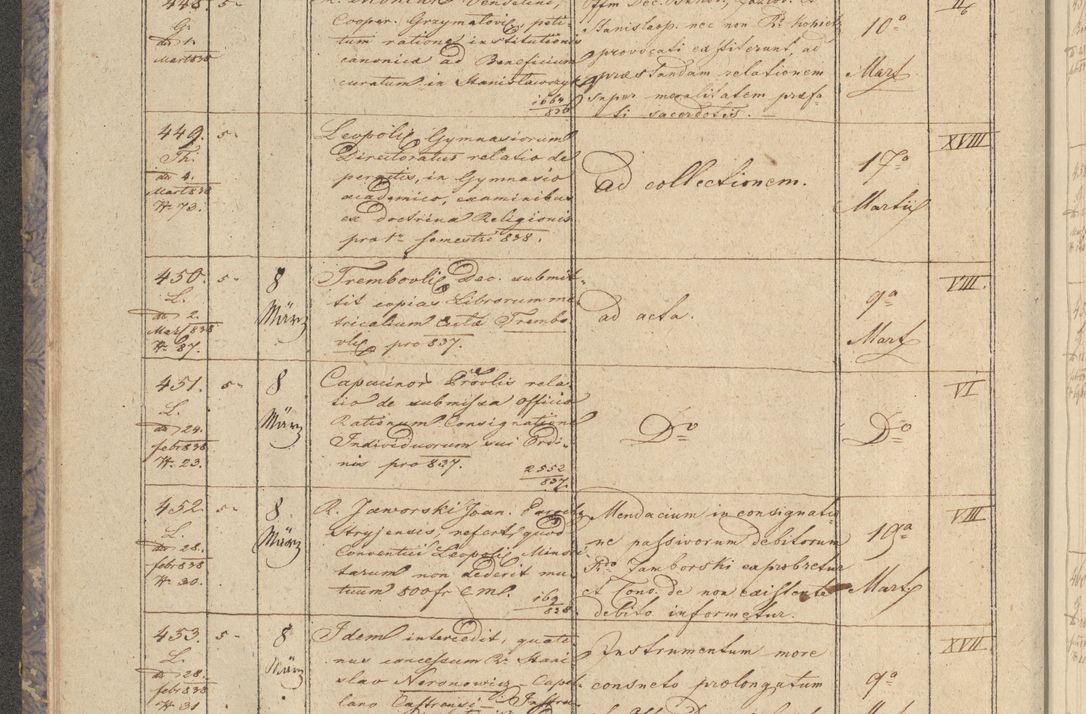 448. 5-
G.
do 1.
Mart 838
Cooper. Grzymalovie. peti-
tum ratione institutionis
canonicæ ad Beneficium
curatum in Stanislawczyk
1664/836
Stanislaop. nec non
provocati extiterunt, ad
præstandam relationem
super moralitatem præfa-
ti sacerdotis.
10a
Mart
II/6
449. 5-
Th.
do 4.
Mart 838
N. 73.
Leopolis Gymnasiorum
Directoratus relatio de
peractis, in Gymnasio
academico, examinibus
ex doctrina Religionis
pro 1o semestri 838.
ad collectionem.
17a
Martii
XVIII
450. 5-
L.
do 2.
Mart 838
N. 87.
8
März
Trembovlis Dec. submit-
tit copias Librorum ma-
tricalium Trembo
vlis pro 837.
ad acta.
9a
Mart
VIII.
451. 5-
L.
do 24.
febr 838
N. 23.
8
März
Capucinor Provlis rela-
tio de submissa officio
Rationum Consignatione
Individuorum sui Ordi-
nis pro 837.
2552/837.
Do
Do
VI
452. 5-
L.
do 28.
febr 838
N. 30.
8
März
R. Jaworski Joan.
Stryjensis, refert, quod
Conventui Leopoli Minori
tarum non dederit mu-
tuum 800 fr CMl.
169/838
Mendacium in consignatio
ne passivorum debitorum
Rdo Tamborski exprobretur
et Cono. de non existente
debito informetur.
19a
Mart
VIII
453. 5-
L.
do 28.
febr 838
N. 31
8
März
Idem intercedit, quate-
nus concessum Ro Stani
slao Neronowicz Capel
lano Castrensi
Instrumentum more
consueto prolongatum
9a
XVII